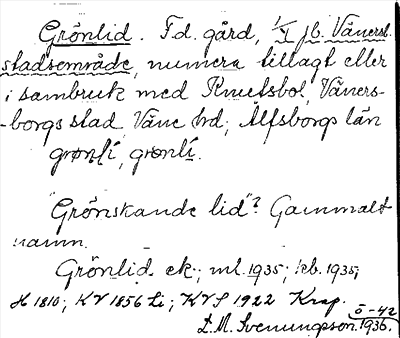 Grönlid. Fd. gård, 1/4 jb. Vänersb.
stadsområde, numera tillagt eller
i sambruk med Knutsbol, Väners-
-borgs stad, Väne hd; Älfsborgs län
grønlí, grønlí.
"Grönskande lid"? Gammalt
namn.
Grönlid ek.; ml. 1935; kb. 1935;
H 1810; KV 1856 Li; KVS 1922 Krap.
Ö-42
D.M. Svenungsson. 1936.